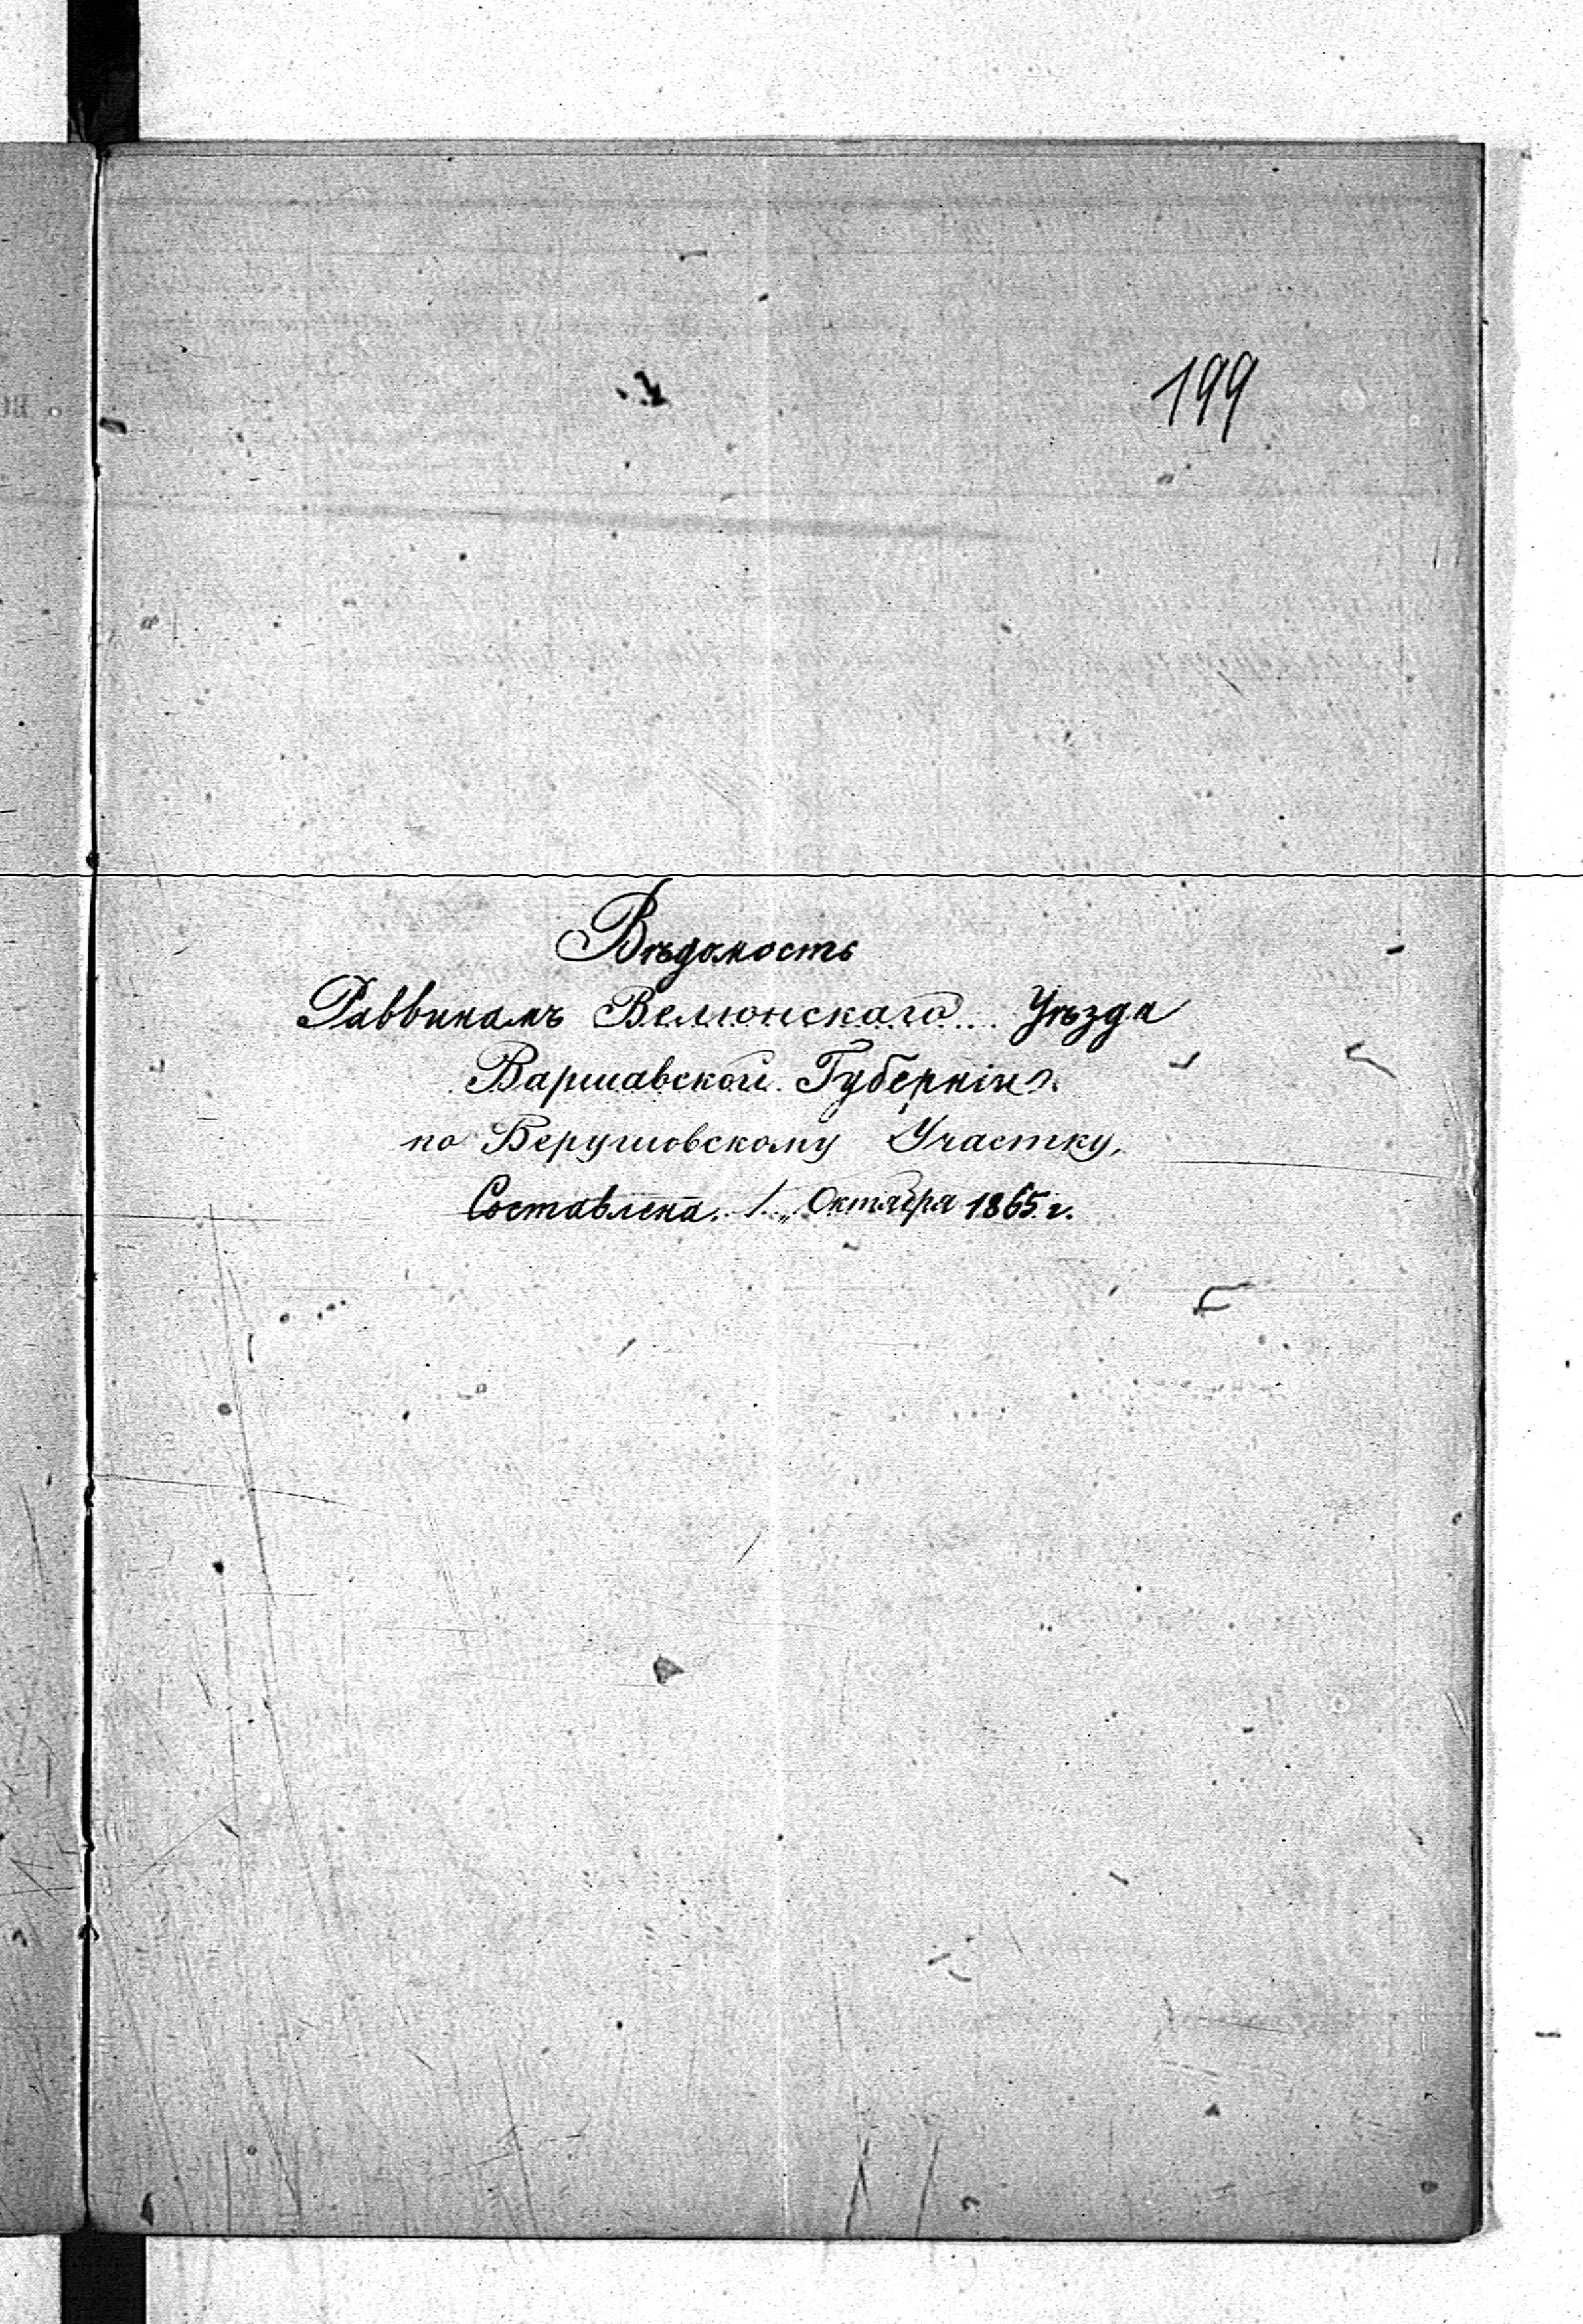 199
Вѣдомость
Раввинамъ Велюнскаго Уѣзда
Варшавской Губерніи
по Верушовскому Участку,
Составлена 1 Октября 1865 г.